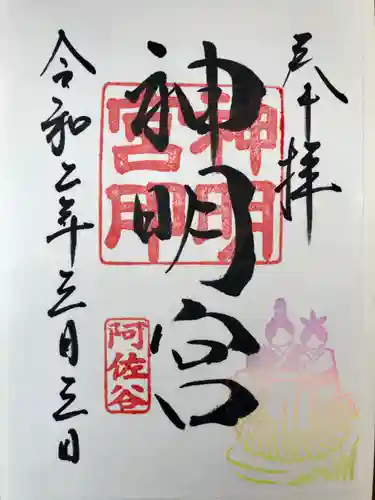 奉拝
神明宮
神明
宮印
阿佐谷
令和二年三月三日